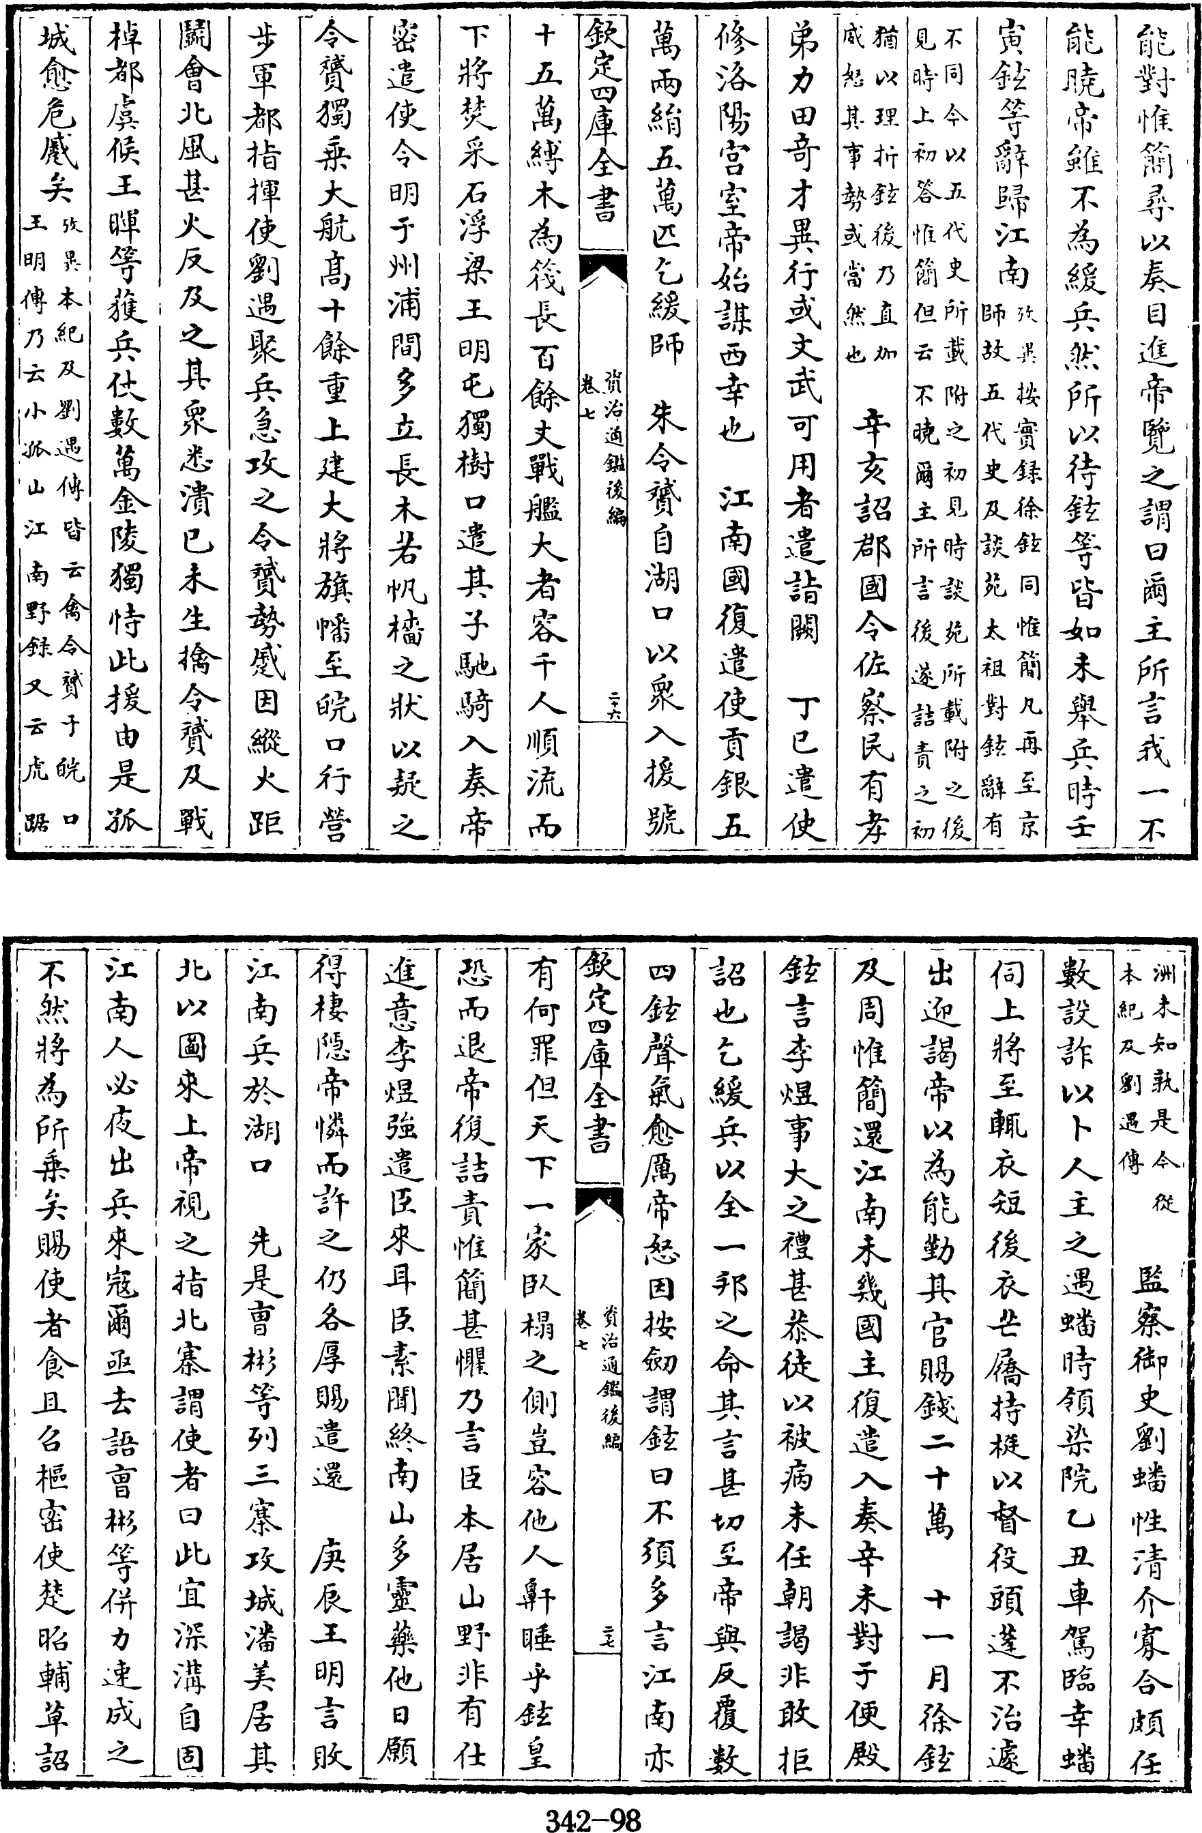 能對惟簡尋以奏目進帝覽之謂曰爾主所言我一不
能曉帝雖不為緩兵然所以待鉉等皆如未舉兵時壬
寅鉉等辭歸江南攷異按實録徐鉉同惟簡凡再至京
師故五代史及談苑太祖對鉉辭有
不同今以五代史所載附之初見時談苑所載附之後
見時上初答惟簡但云不曉爾主所言後遂詰責之初
猶以理折鉉後乃直加
威怒其事勢或當然也辛亥詔郡國令佐察民有孝
弟力田奇才異行或文武可用者遣詣闕丁巳遣使
修洛陽宫室帝始謀西幸也江南國復遣使貢銀五
萬兩絹五萬匹乞緩師朱令贇自湖口以衆入援號
欽定四庫全書
資治通鑑後編
卷七
二十六
十五萬縛木為筏長百餘丈戰艦大者容千人順流而
下將焚采石浮梁王明屯獨樹口遣其子馳騎入奏帝
密遣使令明于州浦間多立長木若帆檣之狀以疑之
令贇獨乗大航髙十餘重上建大將旗幡至皖口行營
步軍都指揮使劉遇聚兵急攻之令贇勢蹙因縱火距
鬭會北風甚火反及之其衆悉潰已未生擒令贇及戰
棹都虞候王暉等獲兵仗數萬金陵獨恃此援由是孤
城愈危蹙矣攷異本紀及劉遇傳皆云禽令贇于皖口
王明傳乃云小孤山江南野録又云虎踞
洲未知孰是今從
本紀及劉遇傳監察御史劉蟠性清介寡合頗任
數設詐以卜人主之遇蟠時領染院乙丑車駕臨幸蟠
伺上將至輒衣短後衣芒屩持梃以督役頭蓬不治遽
出迎謁帝以為能勤其官賜錢二十萬十一月徐鉉
及周惟簡還江南未幾國主復遣入奏辛未對于便殿
鉉言李煜事大之禮甚恭徒以被病未任朝謁非敢拒
詔也乞緩兵以全一邦之命其言甚切至帝與反覆數
四鉉聲氣愈厲帝怒因按劒謂鉉曰不須多言江南亦
欽定四庫全書
資治通鑑後編
卷七
二十七
有何罪但天下一家臥榻之側豈容他人鼾睡乎鉉皇
恐而退帝復詰責惟簡甚懼乃言臣本居山野非有仕
進意李煜強遣臣來耳臣素聞終南山多靈藥他日願
得棲隠帝憐而許之仍各厚賜遣還庚辰王明言敗
江南兵於湖口先是曹彬等列三寨攻城潘美居其
北以圖來上帝視之指北寨謂使者曰此宜深溝自固
江南人必夜出兵來寇爾亟去語曹彬等併力速成之
不然將為所乗矣賜使者食且召樞密使楚昭輔草詔
342-98